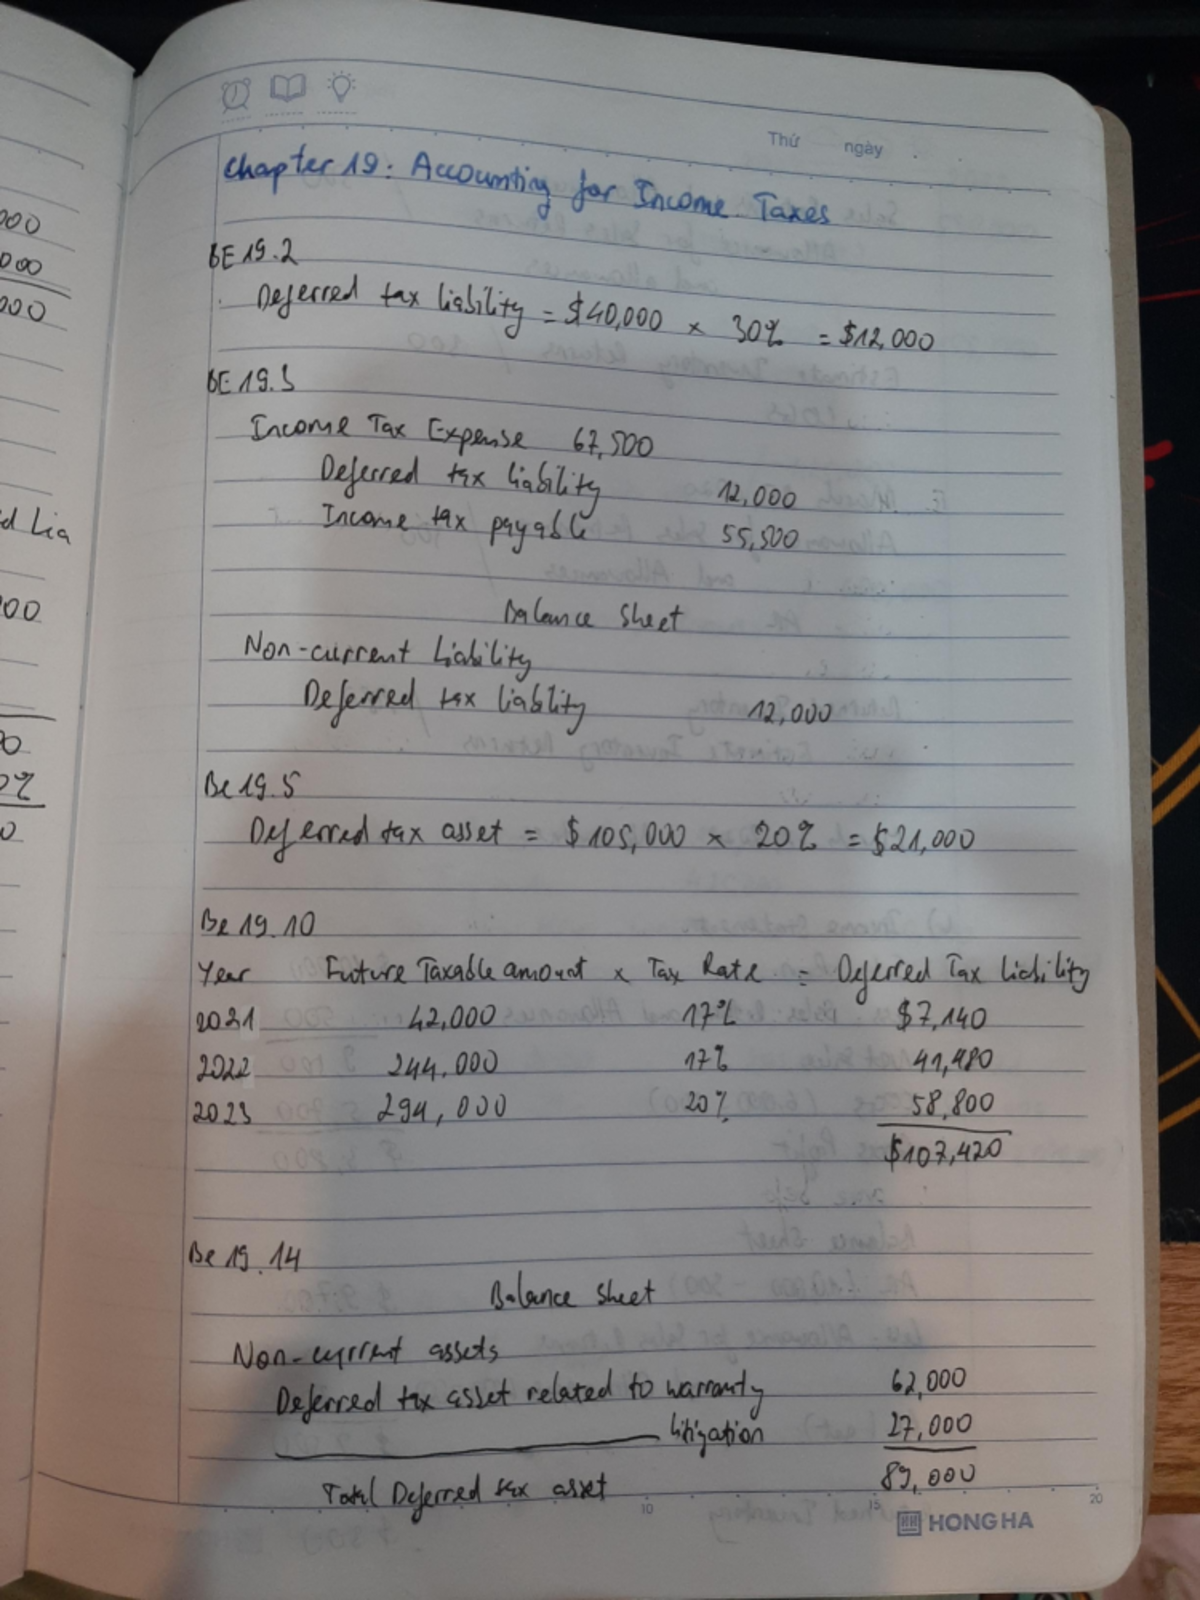 Thứ ngày
Chapter 19: Accounting for Income Taxes
BE 19.2
Deferred tax liability = $40,000 × 30% = $12,000
BE 19.3
Income Tax Expense 67,500
Deferred tax liability 12,000
Income tax payable 55,500
Balance Sheet
Non-current Liability
Deferred tax liability 12,000
Be 19.5
Deferred tax asset = $105,000 × 20% = $21,000
Be 19.10
Year Future Taxable amount × Tax Rate = Deferred Tax liability
2021 42,000 17% $7,140
2022 244,000 17% 41,480
2023 294,000 20% 58,800
$107,420
Be 19.14
Balance Sheet
Non-current assets
Deferred tax asset related to warranty 62,000
litigation 27,000
Total Deferred tax asset 89,000
10 15 20
HONG HA
000
000
000
d Lia
00
0
0%
0